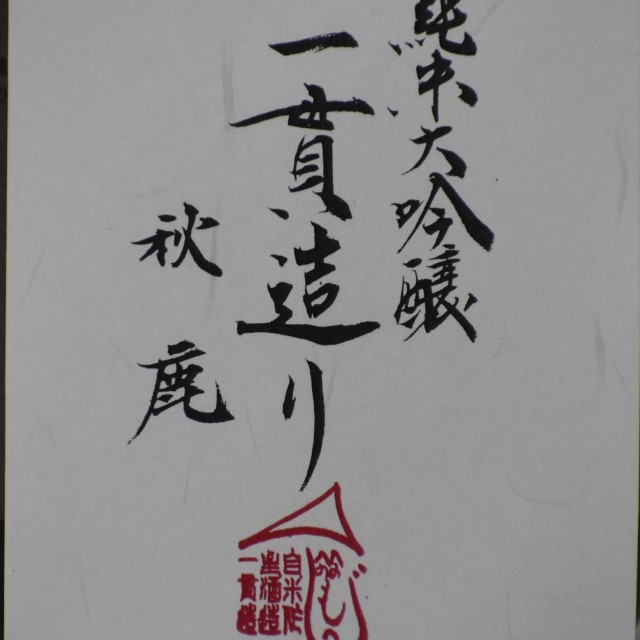 純米大吟醸
一貫造り
秋鹿
自米作
一貫造